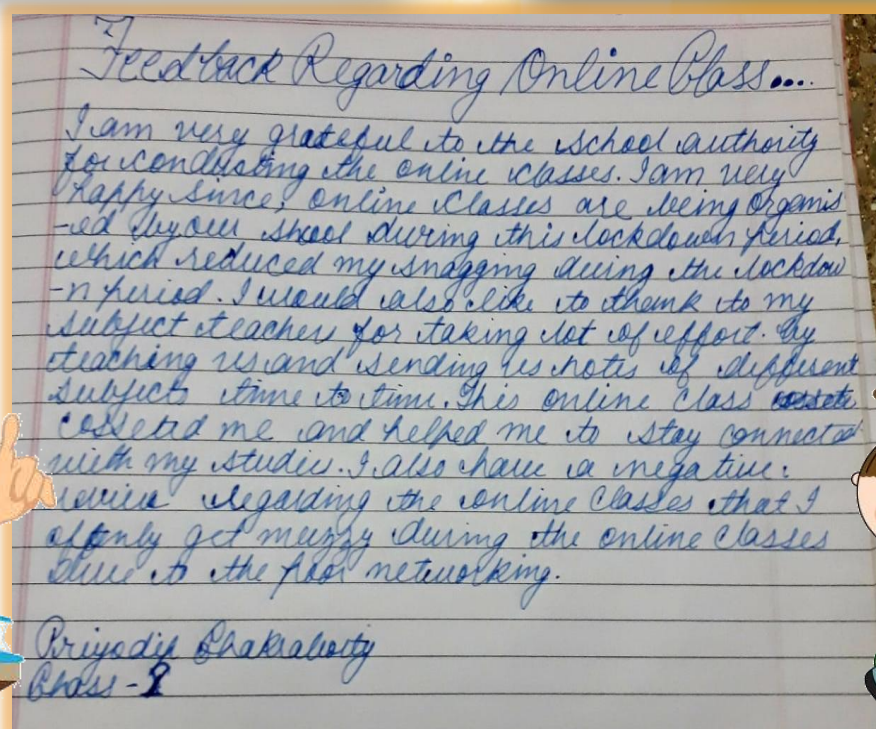 Feedback Regarding Online Class....
I am very grateful to the school authority
for conducting the online classes. I am very
happy since, online classes are being organis
-ed by our shool during this lockdown period,
which reduced my snagging during the lockdow
-n period. I would also like to thank to my
subject teachers for taking lot of effort. By
teaching us and sending us notes of different
subjects time to time. This online class
cosseted me and helped me to stay connected
with my studies. I also have a negative
review regarding the online classes that I
oftenly get muzzy during the online classes
due to the poor networking.
Priyodip Chakraborty
Class - 8